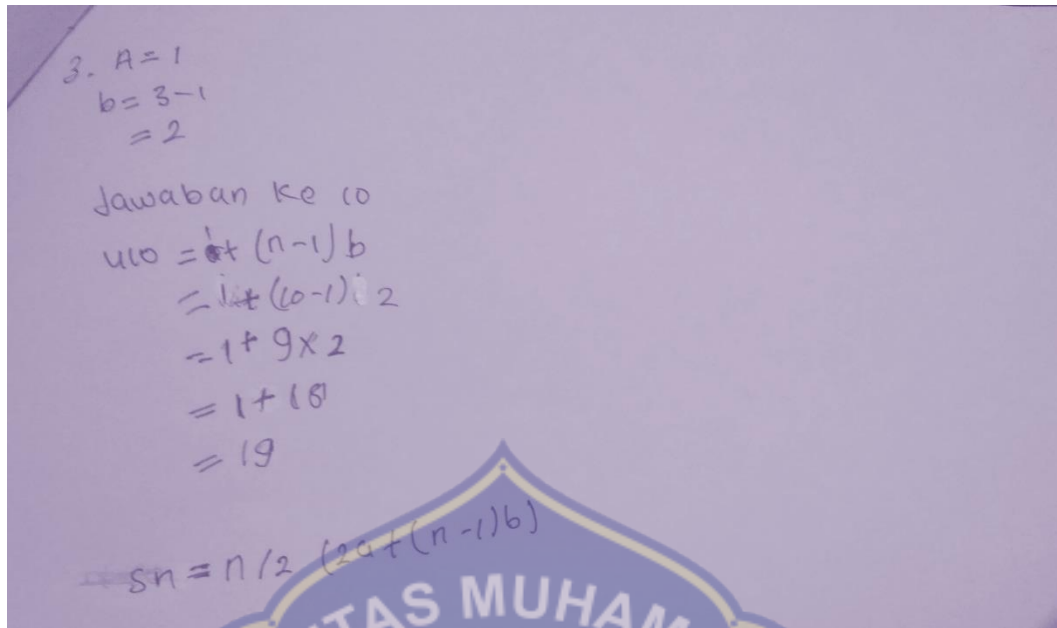 3. A = 1
b = 3-1
= 2
Jawaban ke 10
U10 = 1+ (n-1) b
= 1+ (10-1) 2
= 1+ 9x2
= 1+ 18
= 19
Sn = n/2 (2a+(n-1)b)
TAS MUHAM